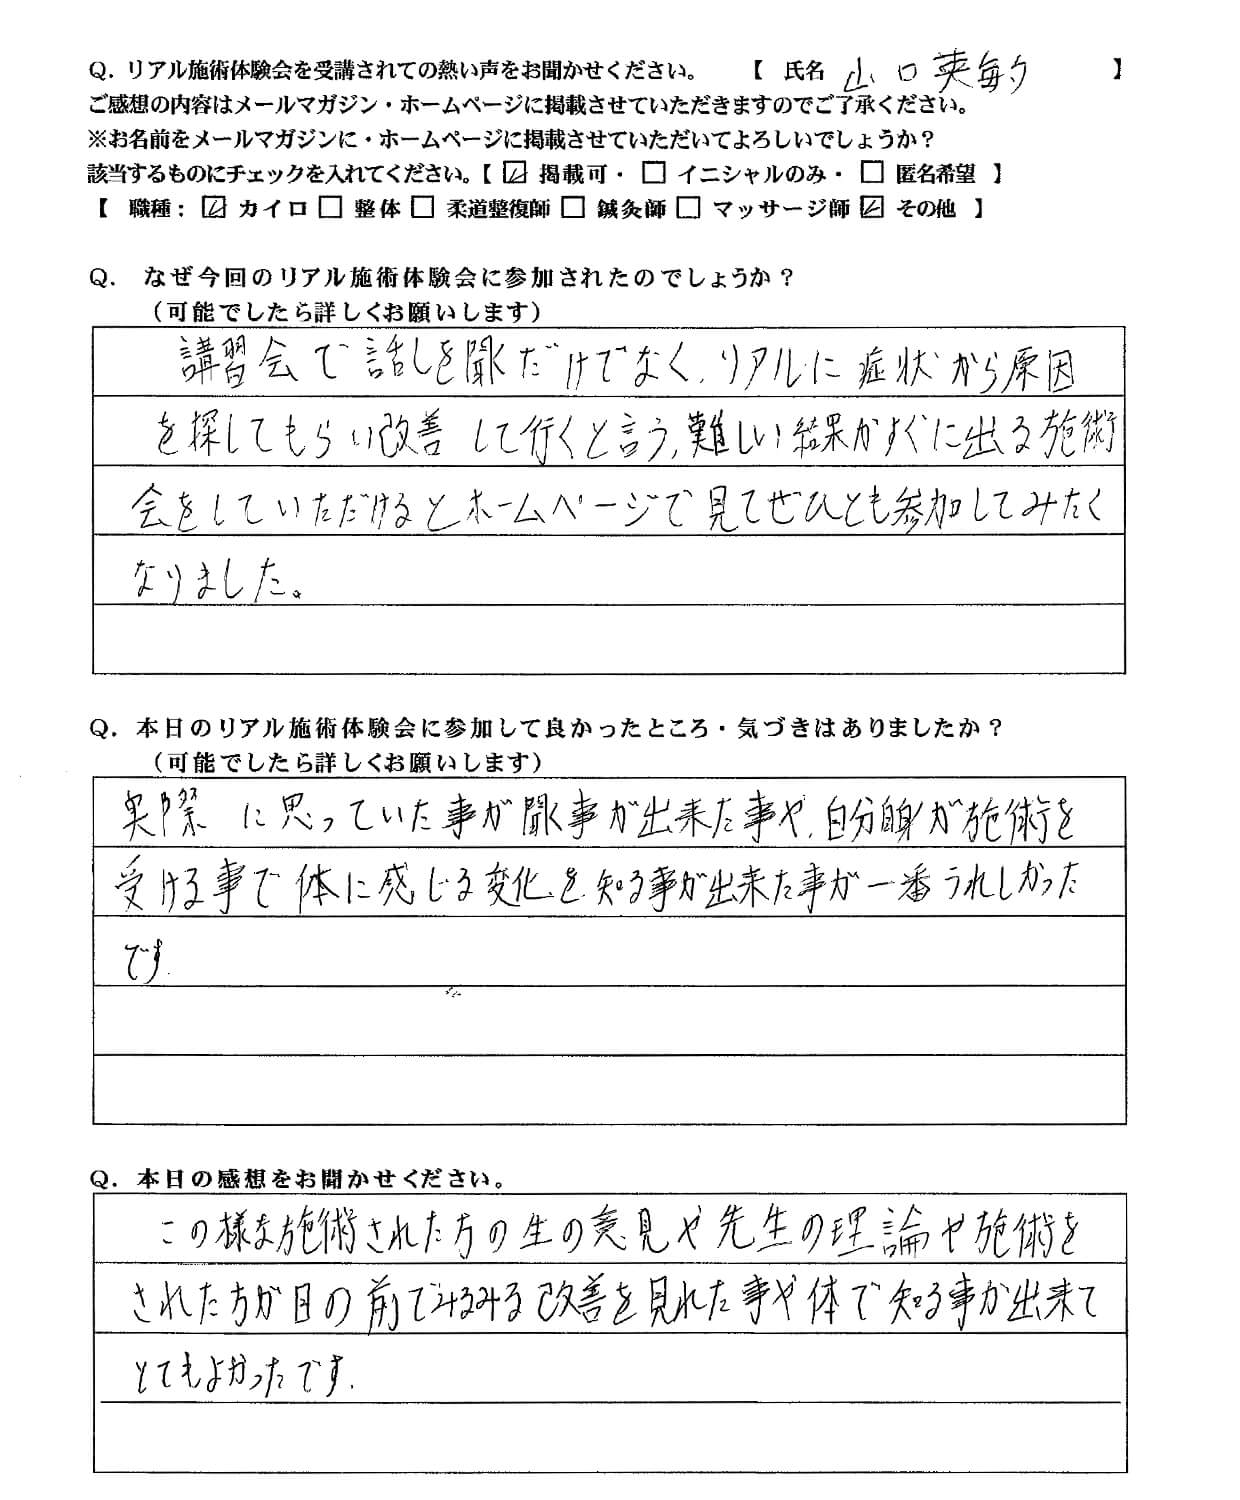 Q．リアル施術体験会を受講されての熱い声をお聞かせください。　【　氏名　山口英毎夕　】
ご感想の内容はメールマガジン・ホームページに掲載させていただきますのでご了承ください。
※お名前をメールマガジンに・ホームページに掲載させていただいてよろしいでしょうか？
該当するものにチェックを入れてください。【 ☑ 掲載可・ □ イニシャルのみ・ □ 匿名希望 】
【　職種：☑ カイロ □ 整体 □ 柔道整復師 □ 鍼灸師 □ マッサージ師 ☑ その他 】
Q．　なぜ今回のリアル施術体験会に参加されたのでしょうか？
（可能でしたら詳しくお願いします）
講習会で話しを聞くだけでなく、リアルに症状から原因
を探してもらい改善して行くと言う、難しい結果がすぐに出る施術
会をしていただけるとホームページで見てぜひとも参加してみたく
なりました。
Q．本日のリアル施術体験会に参加して良かったところ・気づきはありましたか？
（可能でしたら詳しくお願いします）
実際に思っていた事が聞く事が出来た事や、自分自身が施術を
受ける事で体に感じる変化を知る事が出来た事が一番うれしかった
です.
Q．本日の感想をお聞かせください。
この様な施術された方の生の意見や先生の理論や施術を
された方が目の前でみるみる改善を見れた事や体で知る事が出来て
とてもよかったです.